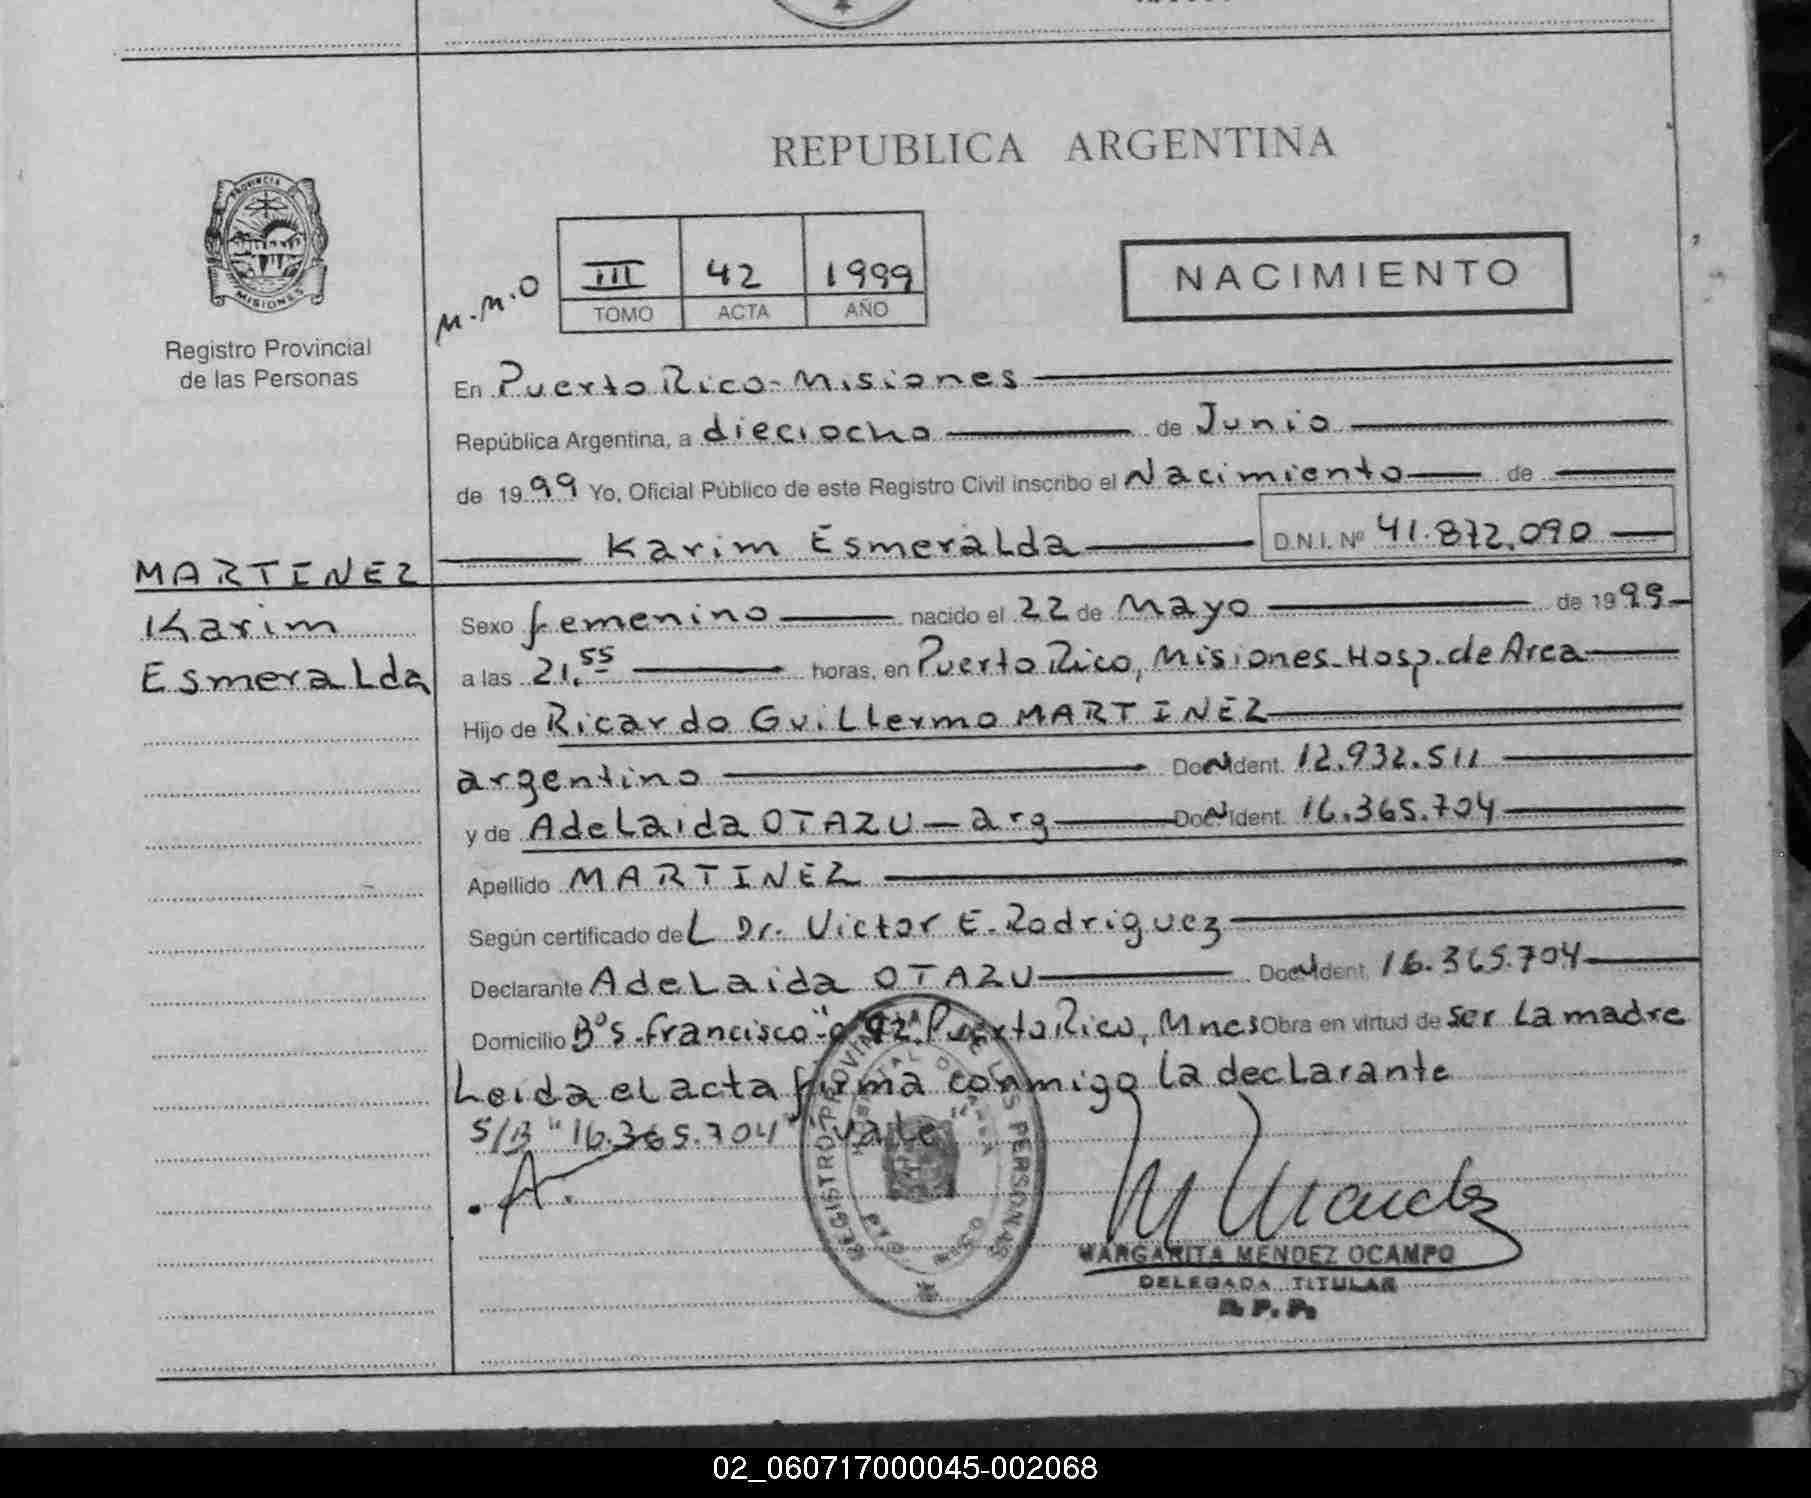 REPUBLICA ARGENTINA
PROVINCIA
MISIONES
Registro Provincial
de las Personas
M.M.O
III 42 1999
TOMO ACTA AÑO
NACIMIENTO
En Puerto Rico - Misiones
República Argentina, a dieciocho de Junio
de 1999 Yo, Oficial Público de este Registro Civil inscribo el Nacimiento de
Karim Esmeralda D.N.I. Nº 41.872.090
MARTINEZ
Karim
Esmeralda
Sexo femenino nacido el 22 de Mayo de 1999
a las 21,55 horas, en Puerto Rico, Misiones - Hosp. de Area
Hijo de Ricardo Guillermo MARTINEZ
argentino Doc. Ident. 12.932.511
y de Adelaida OTAZU - arg Doc. Ident. 16.365.704
Apellido MARTINEZ
Según certificado del Dr. Victor E. Rodriguez
Declarante Adelaida OTAZU Doc. Ident. 16.365.704
Domicilio Bº S. francisco Puerto Rico, Mnes Obra en virtud de ser la madre
Leida el acta firma conmigo la declarante
S/B "16.365.704" vale
REGISTRO PROVINCIAL DE LAS PERSONAS
MARGARITA MENDEZ OCAMPO
DELEGADA TITULAR
R. P. P.
02_060717000045-002068